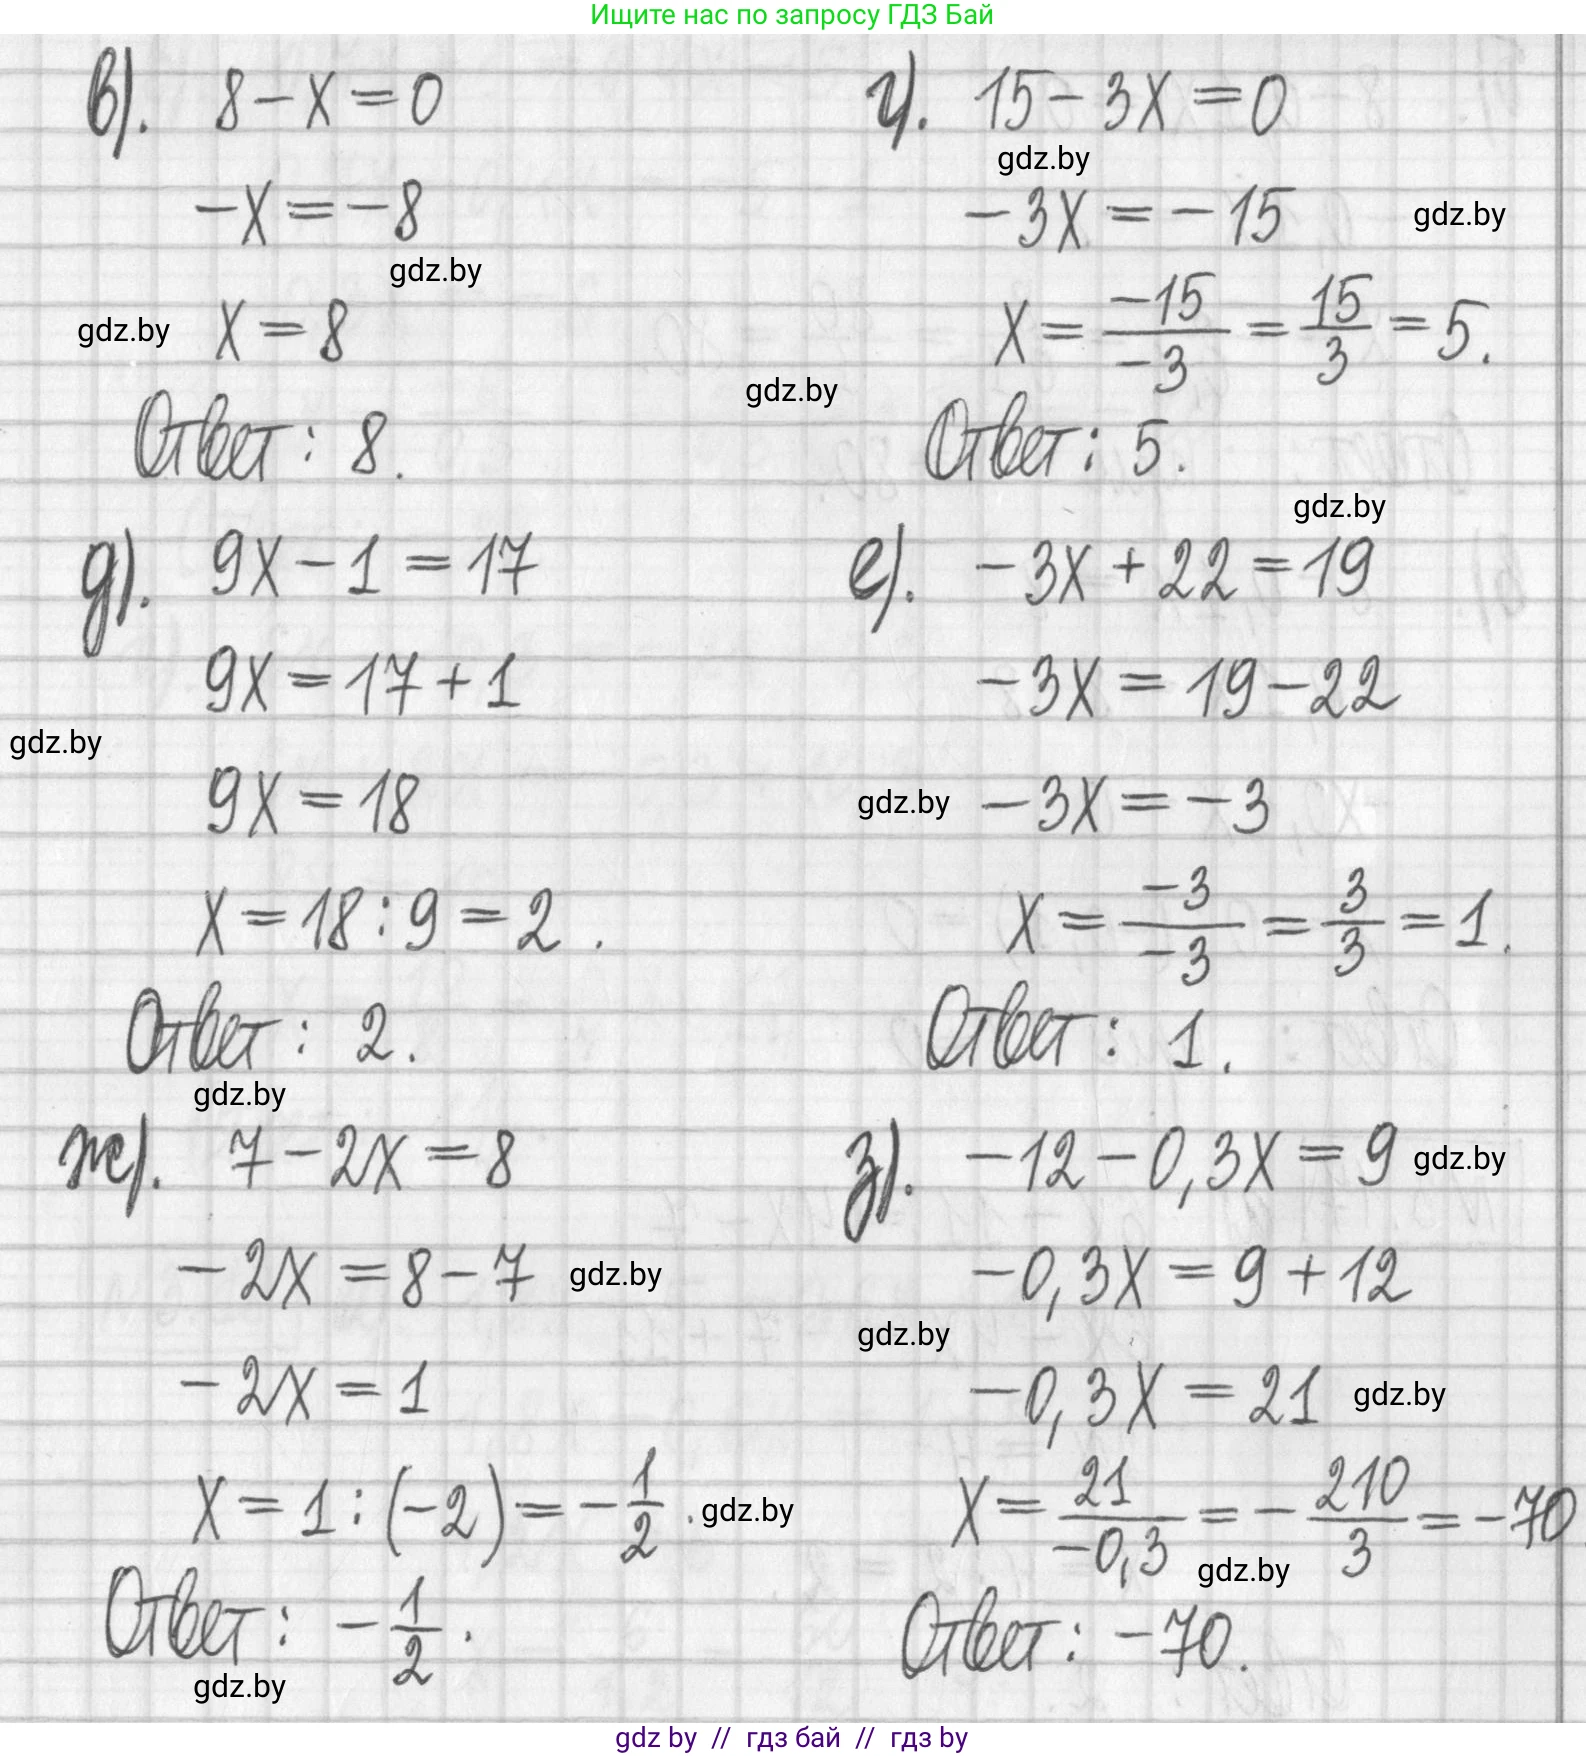 Ищите нас по запросу ГДЗ Бай
в). 8 - x = 0
-x = -8
gdz.by
gdz.by x = 8
Ответ: 8.
г). 15 - 3x = 0
gdz.by
-3x = -15 gdz.by
x = -15/-3 = 15/3 = 5.
gdz.by
Ответ: 5.
gdz.by
д). 9x - 1 = 17
9x = 17 + 1
gdz.by
9x = 18
x = 18 : 9 = 2.
Ответ: 2.
gdz.by
е). -3x + 22 = 19
-3x = 19 - 22
gdz.by -3x = -3
x = -3/-3 = 3/3 = 1.
Ответ: 1.
ж). 7 - 2x = 8
-2x = 8 - 7 gdz.by
-2x = 1
x = 1 : (-2) = -1/2. gdz.by
Ответ: -1/2.
gdz.by
з). -12 - 0,3x = 9 gdz.by
-0,3x = 9 + 12
gdz.by
-0,3x = 21 gdz.by
x = 21/-0,3 = -210/3 = -70.
gdz.by
Ответ: -70.
gdz by // гдз бай // гдз by